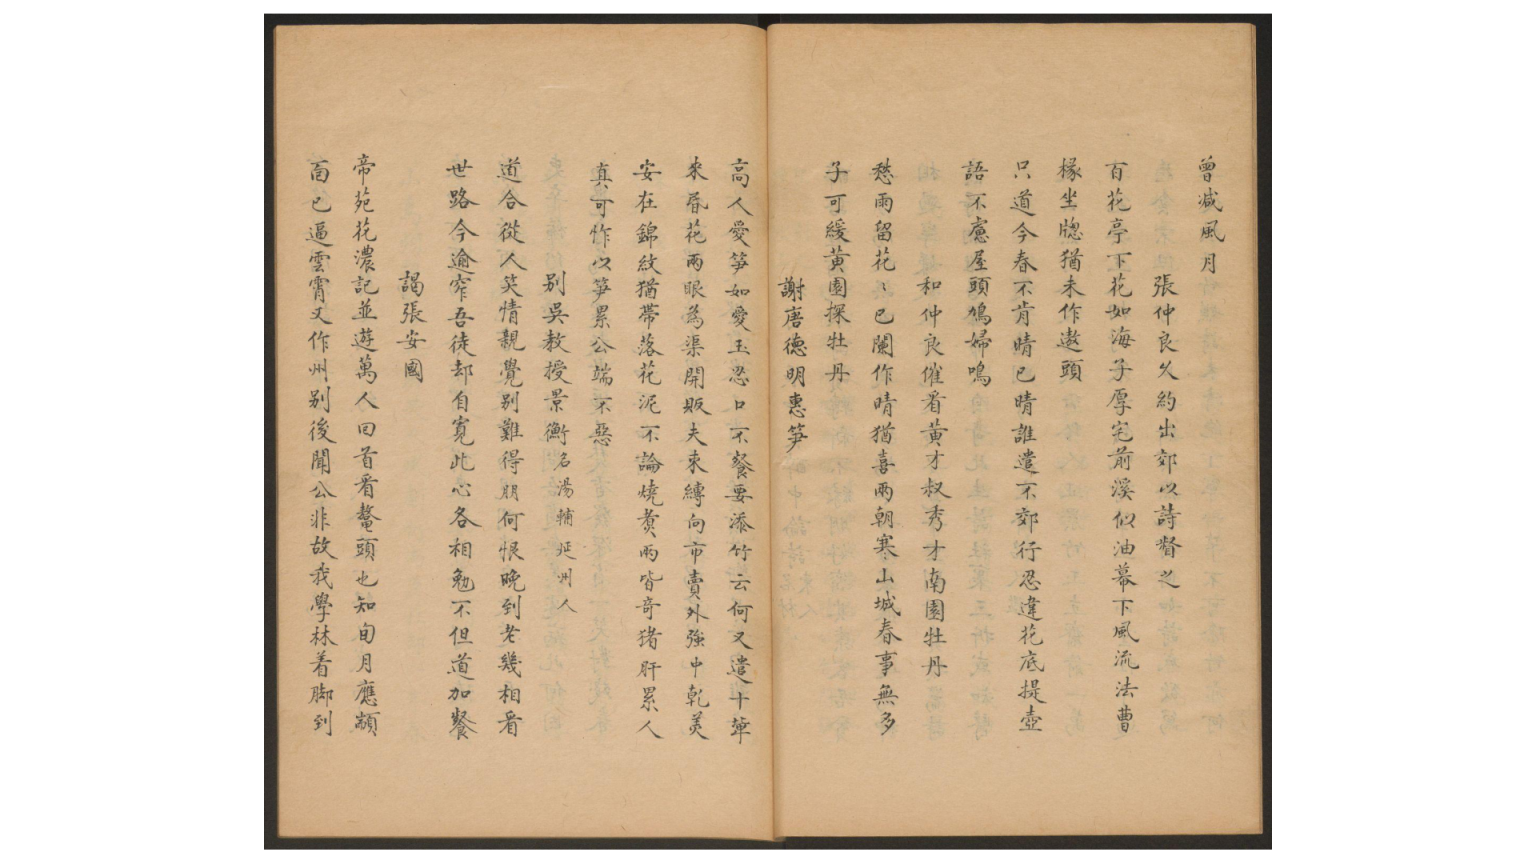 曾减風月
張仲良久約出郊以詩督之
百花亭下花如海子厚宅前溪似油幕下風流法曹
掾坐牕猶未作遨頭
只道今春不肯晴已晴誰遣不郊行忍違花底提壺
語不慮屋頭鳩婦鳴
和仲良催看黄才叔秀才南園牡丹
愁雨留花〻已闌作晴猶喜兩朝寒山城春事無多
子可緩黄園探牡丹
謝唐德明惠笋
高人愛笋如愛玉忍口不餐要添竹云何又遣十輩
來昏花兩眼為渠開販夫束縛向市賣外強中乾美
安在錦紋猶帶落花泥不論燒煑兩皆竒猪肝累人
真可怍以笋累公端不惡
别吳教授景衡名湯輔延州人
道合從人笑情親覺别難得朋何恨晚到老幾相看
世路今逾窄吾徒却自寛此心各相勉不但道加餐
謁張安國
帝苑花濃記並遊萬人囘首看鼇頭也知旬月應顓
面已逼雲霄又作州别後聞公非故我學林着脚到